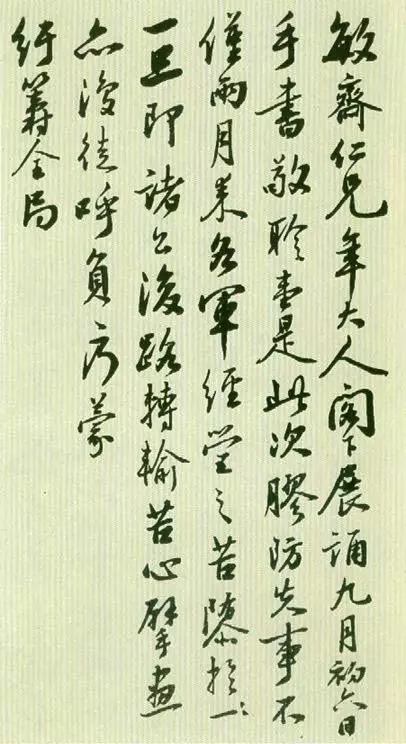 敏齋仁兄年大人閣下展誦九月初六日
手書敬聆壹是此次膠防失事不
僅兩月來各軍經營之苦隳於
一旦即諸公後路轉輸苦心擘畫
亦復徒呼負蒙
紆籌全局